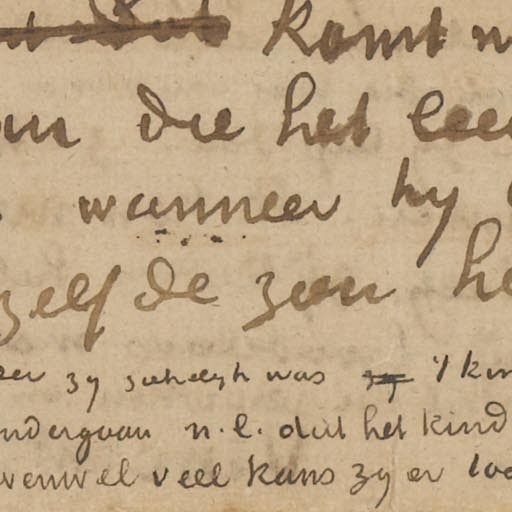 komt
die het lee
wanneer hy
zelfde zoen he
eer zy was zy 't kin
ndergaan n.l. dat het kind
evenwel veel kans zy er